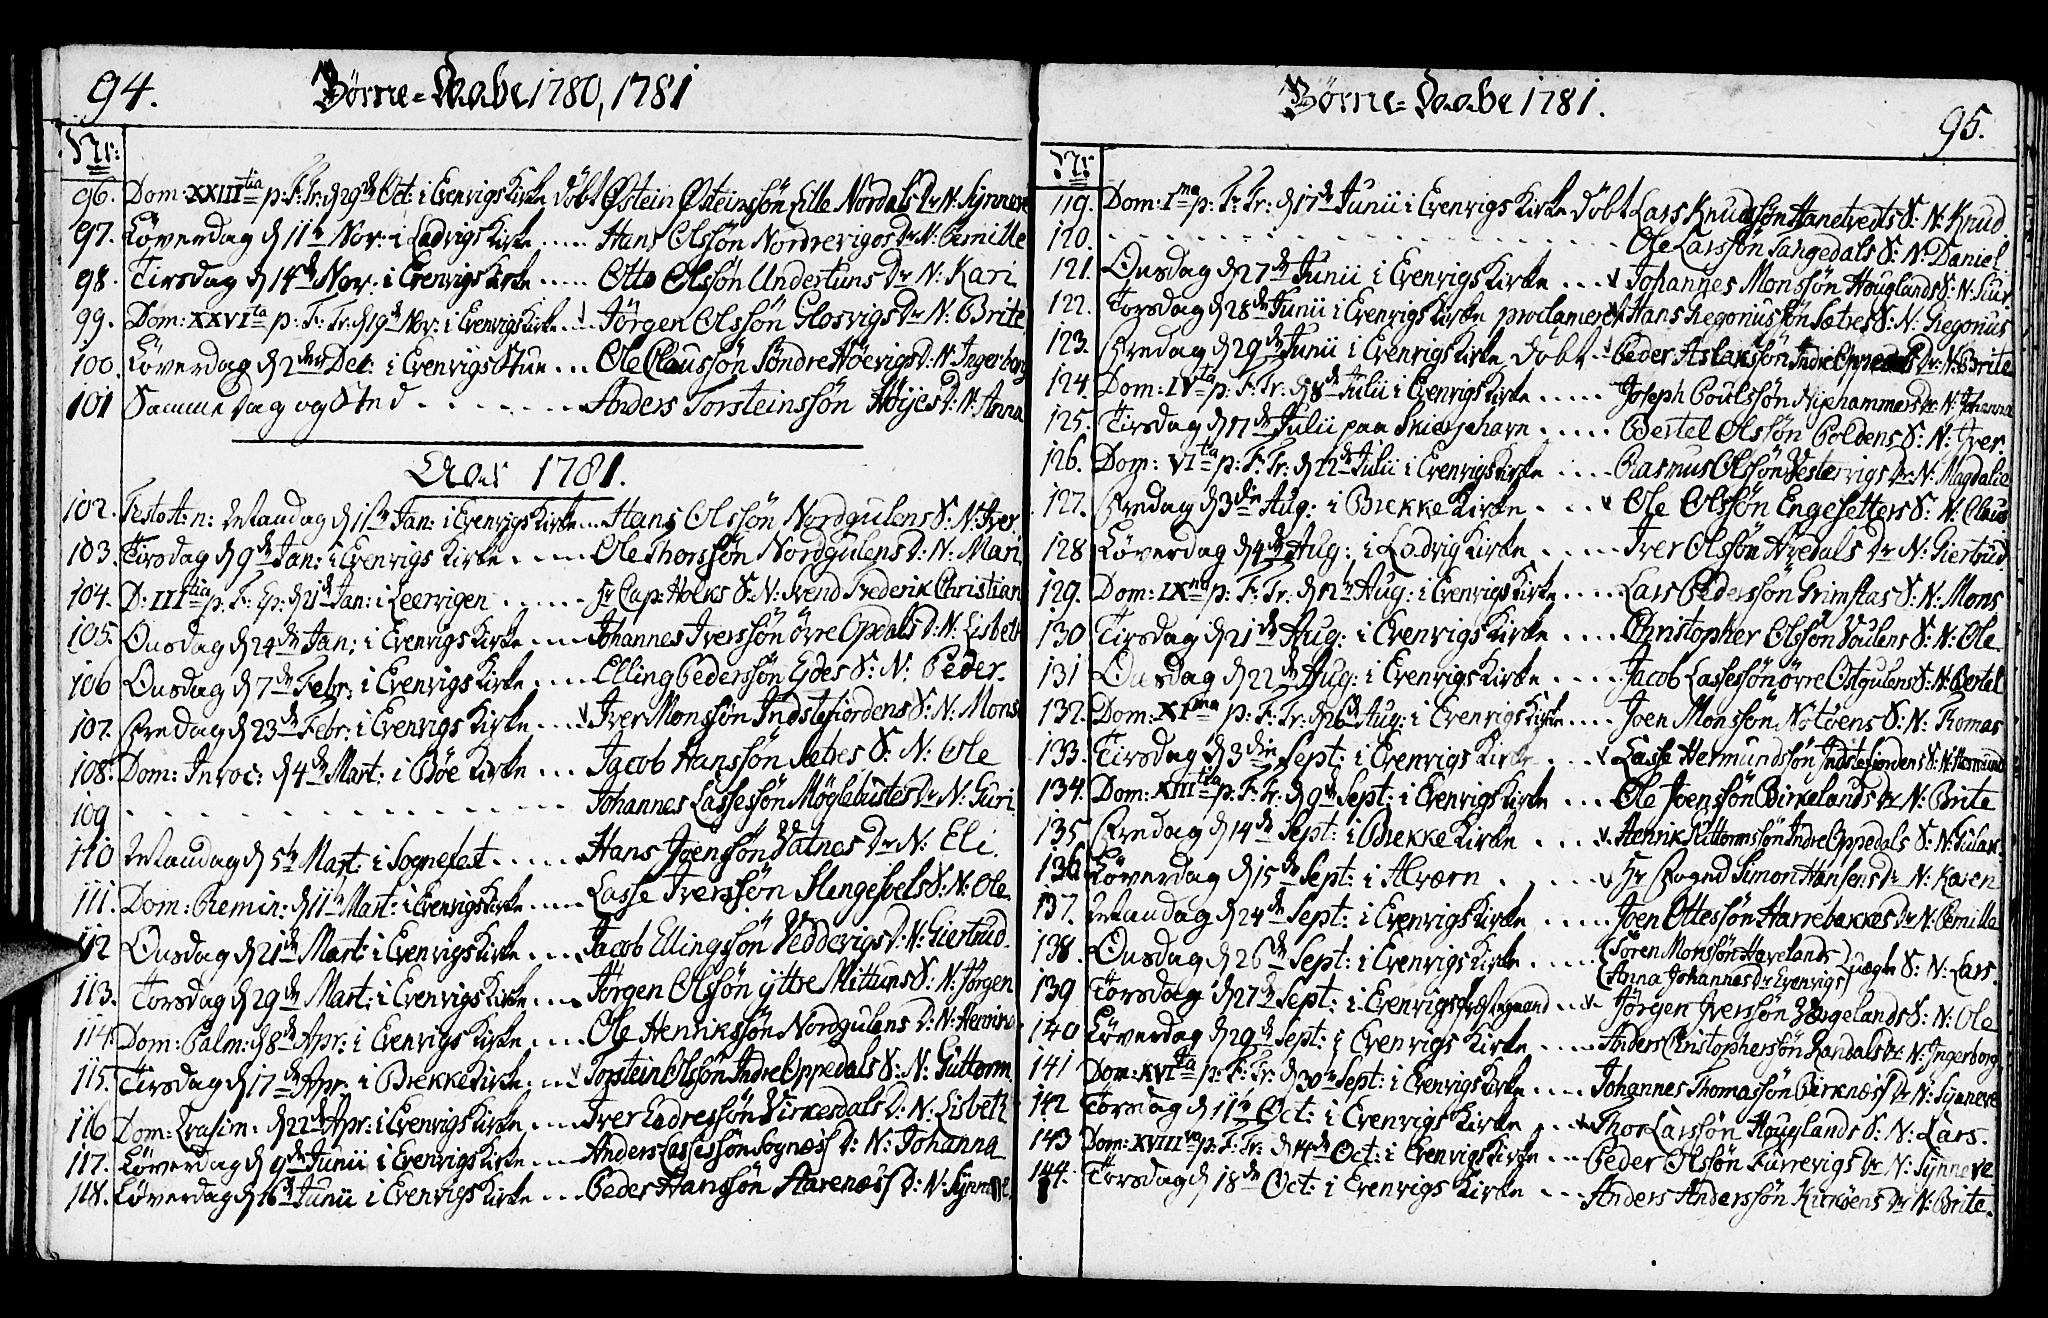 94.
Børne-Daabe 1780, 1781
Nr:
96. Dom: XXIII tia p: F: Tr: d 29 de Oct: i Evenvigs Kirke døbt Østein Østeinssøn Lille Nordals Dr N: Synneve
97. Løverdag d 11 te Nov: i Ladvigs Kirke ..... Hans Olssøn Nordrevigos Dr N: Pernille
98. Tirsdag d 14 de Nov: i Evenvigs Kirke ..... Otto Olssøn Undertuns Dr N: Kari
99. Dom: XXVI ta p: F: Tr: d 19 de Nov: i Evenvigs Kirke ... Jörgen Olssøn Glosvigs Dr N: Brite
100. Løverdag d 2 den Dec: i Evenvigs Stue ... Ole Claussøn Søndre Høevigs D: N: Ingerborg
101 Samme Dag og Sted ....... Anders Torsteinssøn Höijes D: N: Anna
Aar 1781.
102. Festo : Mandag d 1 ste Jan: i Evenvigs Kirke ... Hans Olssøn Nordgulens S: N: Iver
103. Tirsdag d 9 de Jan: i Evenvigs Kirke .... Ole Thorssøn Nordgulens D: N: Mari
104. D: III tia p: F: Ep: d 21 de Jan: i Leervigen ...... Hr Cap: Holks S: N: Frederik Christian
105. Onsdag d 24 de Jan: i Evenvigs Kirke .... Johannes Iverssøn övre Opedals D: N: Lisbeth
106 Onsdag d 7 de Febr: i Evenvigs Kirke .... Elling Pederssøn Eides S: N: Peder.
107. Fredag d 23 de Febr: i Evenvigs Kirke ... Iver Monssøn Indstefiordens S: N: Mons
108. Dom: Invoc: d 4 de Mart: i Bøe Kirke ... Jacob Hanssøn Sætres S: N: Ole
109 - - - - - - - - Johannes Lassessøn Møglebustes Dr N: Guri
110 Mandag d 5 te Mart: i Sognefæst ..... Hans Joenssøn Vatnes Dr N: Eli.
111. Dom: Remin: d 11 te Mart: i Evenvigs Kirke .... Lasse Iverssøn Slengesoels S: N: Ole
112 Onsdag d 21 de Mart: i Evenvigs Kirke .... Jacob Ellingssøn Vedvigs D: N: Giertrud.
113. Torsdag d 29 de Mart: i Evenvigs Kirke .... Jörgen Olssøn ÿttre Mittuns S: N: Jörgen
114. Dom: Palm: d 8 de Apr: i Evenvigs Kirke .... Ole Henrikssøn Nordgulens D: N:
115. Tirsdag d 17 de Apr: i Brekke Kirke .... Torstein Olssøn Indre Oppedals S: N: Guttorm.
116 Dom: : d 22 de Apr: i Evenvigs Kirke .... Iver Endressøn Virkesdals D: N: Lisbeth
117. Løverdag d 9 de Junii i Evenvigs Kirke .... Anders Lassessøn Sognæss D: N: Johanna
118. Løverdag d 16 de Junii i Evenvigs Kirke ... Peder Hanssøn Aarenæss D: N: Synneve.
Børne-Daabe 1781.
95.
Nr
119. Dom: I ma p: F: Tr: d 17 de Junii i Evenvigs Kirke døbt Lars Knudssøn Hanetvedts S: N: Knud.
120. - - - - - - - - Ole Larssøn Tangedals S: N: Daniel.
121. Onsdag d 27 de Junii i Evenvigs Kirke ... Johannes Monssøn Höuglands S: N: Siur
122. Torsdag d 28 de Junii i Evenvigs Kirke proclameret Hans Gregoriussøn Sætres S: N: Gregorius
123. Fredag d 29 de Junii i Evenvigs Kirke døbt - Peder Aslakssøn Indre Oppedals Dr: N: Brite
124. Dom: IV ta p: F: Tr: d 8 de Julii i Evenvigs Kirke ..... Joseph Poulssøn Nipehammers Dr N: Johanna
125. Tirsdag d 17 de Julii paa Skierjehavn ..... Bertel Olssøn Poldens S: N: Iver.
126. Dom: VI ta p: F: Tr: d 22 de Julii i Evenvigs Kirke .... Rasmus Olssøn Vestervigs Dr N: Magdalie
127. Fredag d 3 die Aug: i Brekke Kirke ... Ole Olssøn Engesetters S: N: Claus
128 Løverdag d 4 de Aug: i Ladvig Kirke ..... Iver Olssøn Axedals Dr N: Giertrud
129. Dom: IX na p: F: Tr: d 12 te Aug: i Evenvigs Kirke .... Lars Pederssøn Grimstas S: N: Mons
130 Tirsdag d 21 de Aug: i Evenvigs Kirke .... Christopher Olssøn Soulens S: N: Ole
131 Onsdag d 22 de Aug: i Evenvigs Kirke ..... Jacob Lassessøn övre Ostgulens S: N: Bertel
132. Dom: XI ma p: F: Tr: d 26 de Aug: i Evenvigs Kirke .... Joen Monssøn Notøens S: N: Thomas
133. Tirsdag d 3 die Sept: i Evenvigs Kirke ... Lasse Hermundssøn Indstefiordens S: N: Hermund
134. Dom: XIII tia p: F: Tr: d 9 de Sept: i Evenvigs Kirke ... Ole Joenssøn Birkelands Dr N: Brite
135 Fredag d 14 de Sept: i Brekke Kirke .... Henrik Guttormssøn Indre Oppedals S: N: Gulak.
136. Løverdag d 15 de Sept: i Alværn .... Hr Foged Simon Hansens Dr N: Karen
137. Mandag d 24 de Sept: i Evenvigs Kirke .... Joen Ottessøn Harrebakkes Dr N: Pernille
138. Onsdag d 26 de Sept: i Evenvigs Kirke .... (Sören Monssøn Havelands
(Anna Johannes Dr Evenvigs) Uægte S: N: Lars.
139 Torsdag d 27 de Sept: i Evenvigs Præstegaard ... Jörgen Iverssøn Haugelands S: N: Ole
140 Løverdag d 29 de Sept: i Evenvigs Kirke .... Anders Christopherssøn Randals Dr: N: Ingerborg
141 Dom: XVI ta p: F: Tr: d 30 te Sept: i Evenvigs Kirke .... Johannes Thomassøn Birknæss Dr N: Synneve
142 Torsdag d 11 te Oct: i Evenvigs Kirke .... Thor Larssøn Höuglands S: N: Lars.
143 Dom: XVIII va p: F: Tr: d 14 de Oct: i Evenvigs Kirke ... Peder Olssøn Furrevigs Dr N: Synneve
144. Torsdag d 18 de Oct: i Evenvigs Kirke ... Anders Anderssøn Kirköens Dr N: Brite.